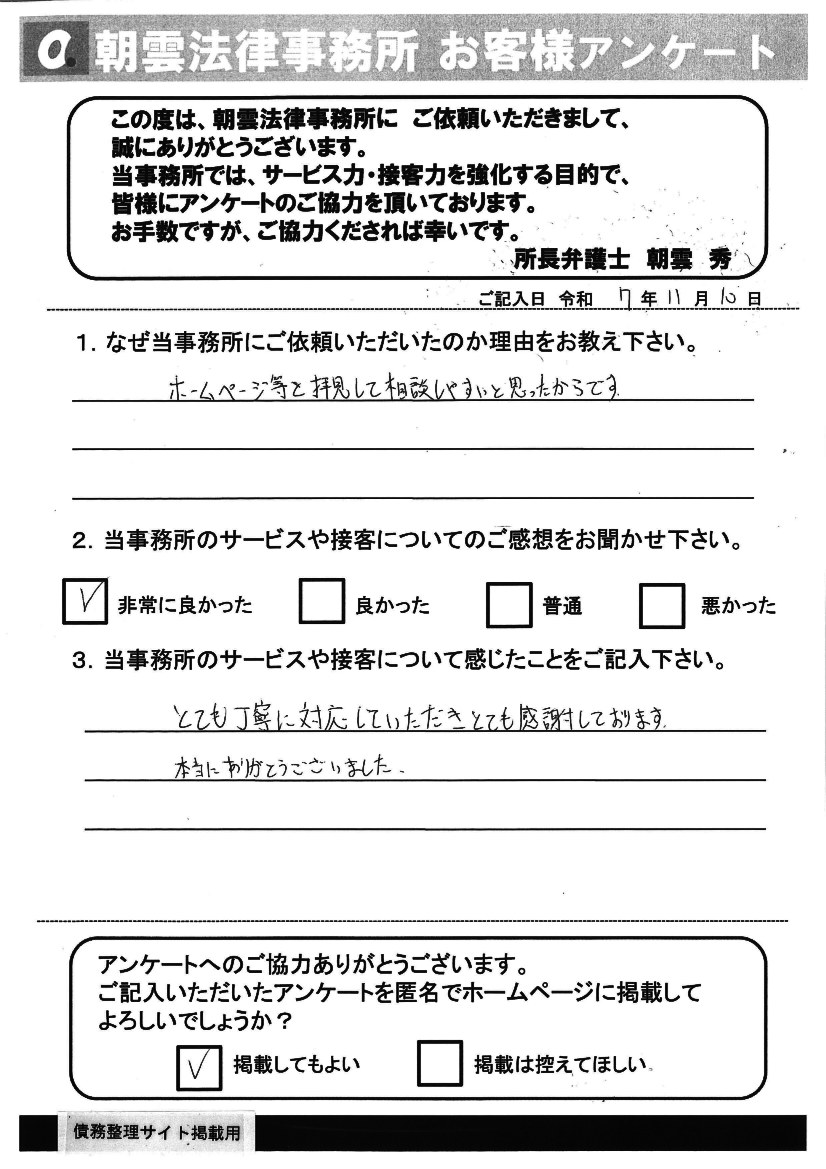 a. 朝雲法律事務所 お客様アンケート
この度は、朝雲法律事務所に ご依頼いただきまして、
誠にありがとうございます。
当事務所では、サービス力・接客力を強化する目的で、
皆様にアンケートのご協力を頂いております。
お手数ですが、ご協力くだされば幸いです。
所長弁護士 朝雲 秀
ご記入日 令和 7 年 11 月 10 日
1. なぜ当事務所にご依頼いただいたのか理由をお教え下さい。
ホームページ等を拝見して相談しやすいと思ったからです
2. 当事務所のサービスや接客についてのご感想をお聞かせ下さい。
☑ 非常に良かった □ 良かった □ 普通 □ 悪かった
3. 当事務所のサービスや接客について感じたことをご記入下さい。
とても丁寧に対応していただきとても感謝しております。
本当にありがとうございました。
アンケートへのご協力ありがとうございます。
ご記入いただいたアンケートを匿名でホームページに掲載して
よろしいでしょうか？
☑ 掲載してもよい □ 掲載は控えてほしい
債務整理サイト掲載用